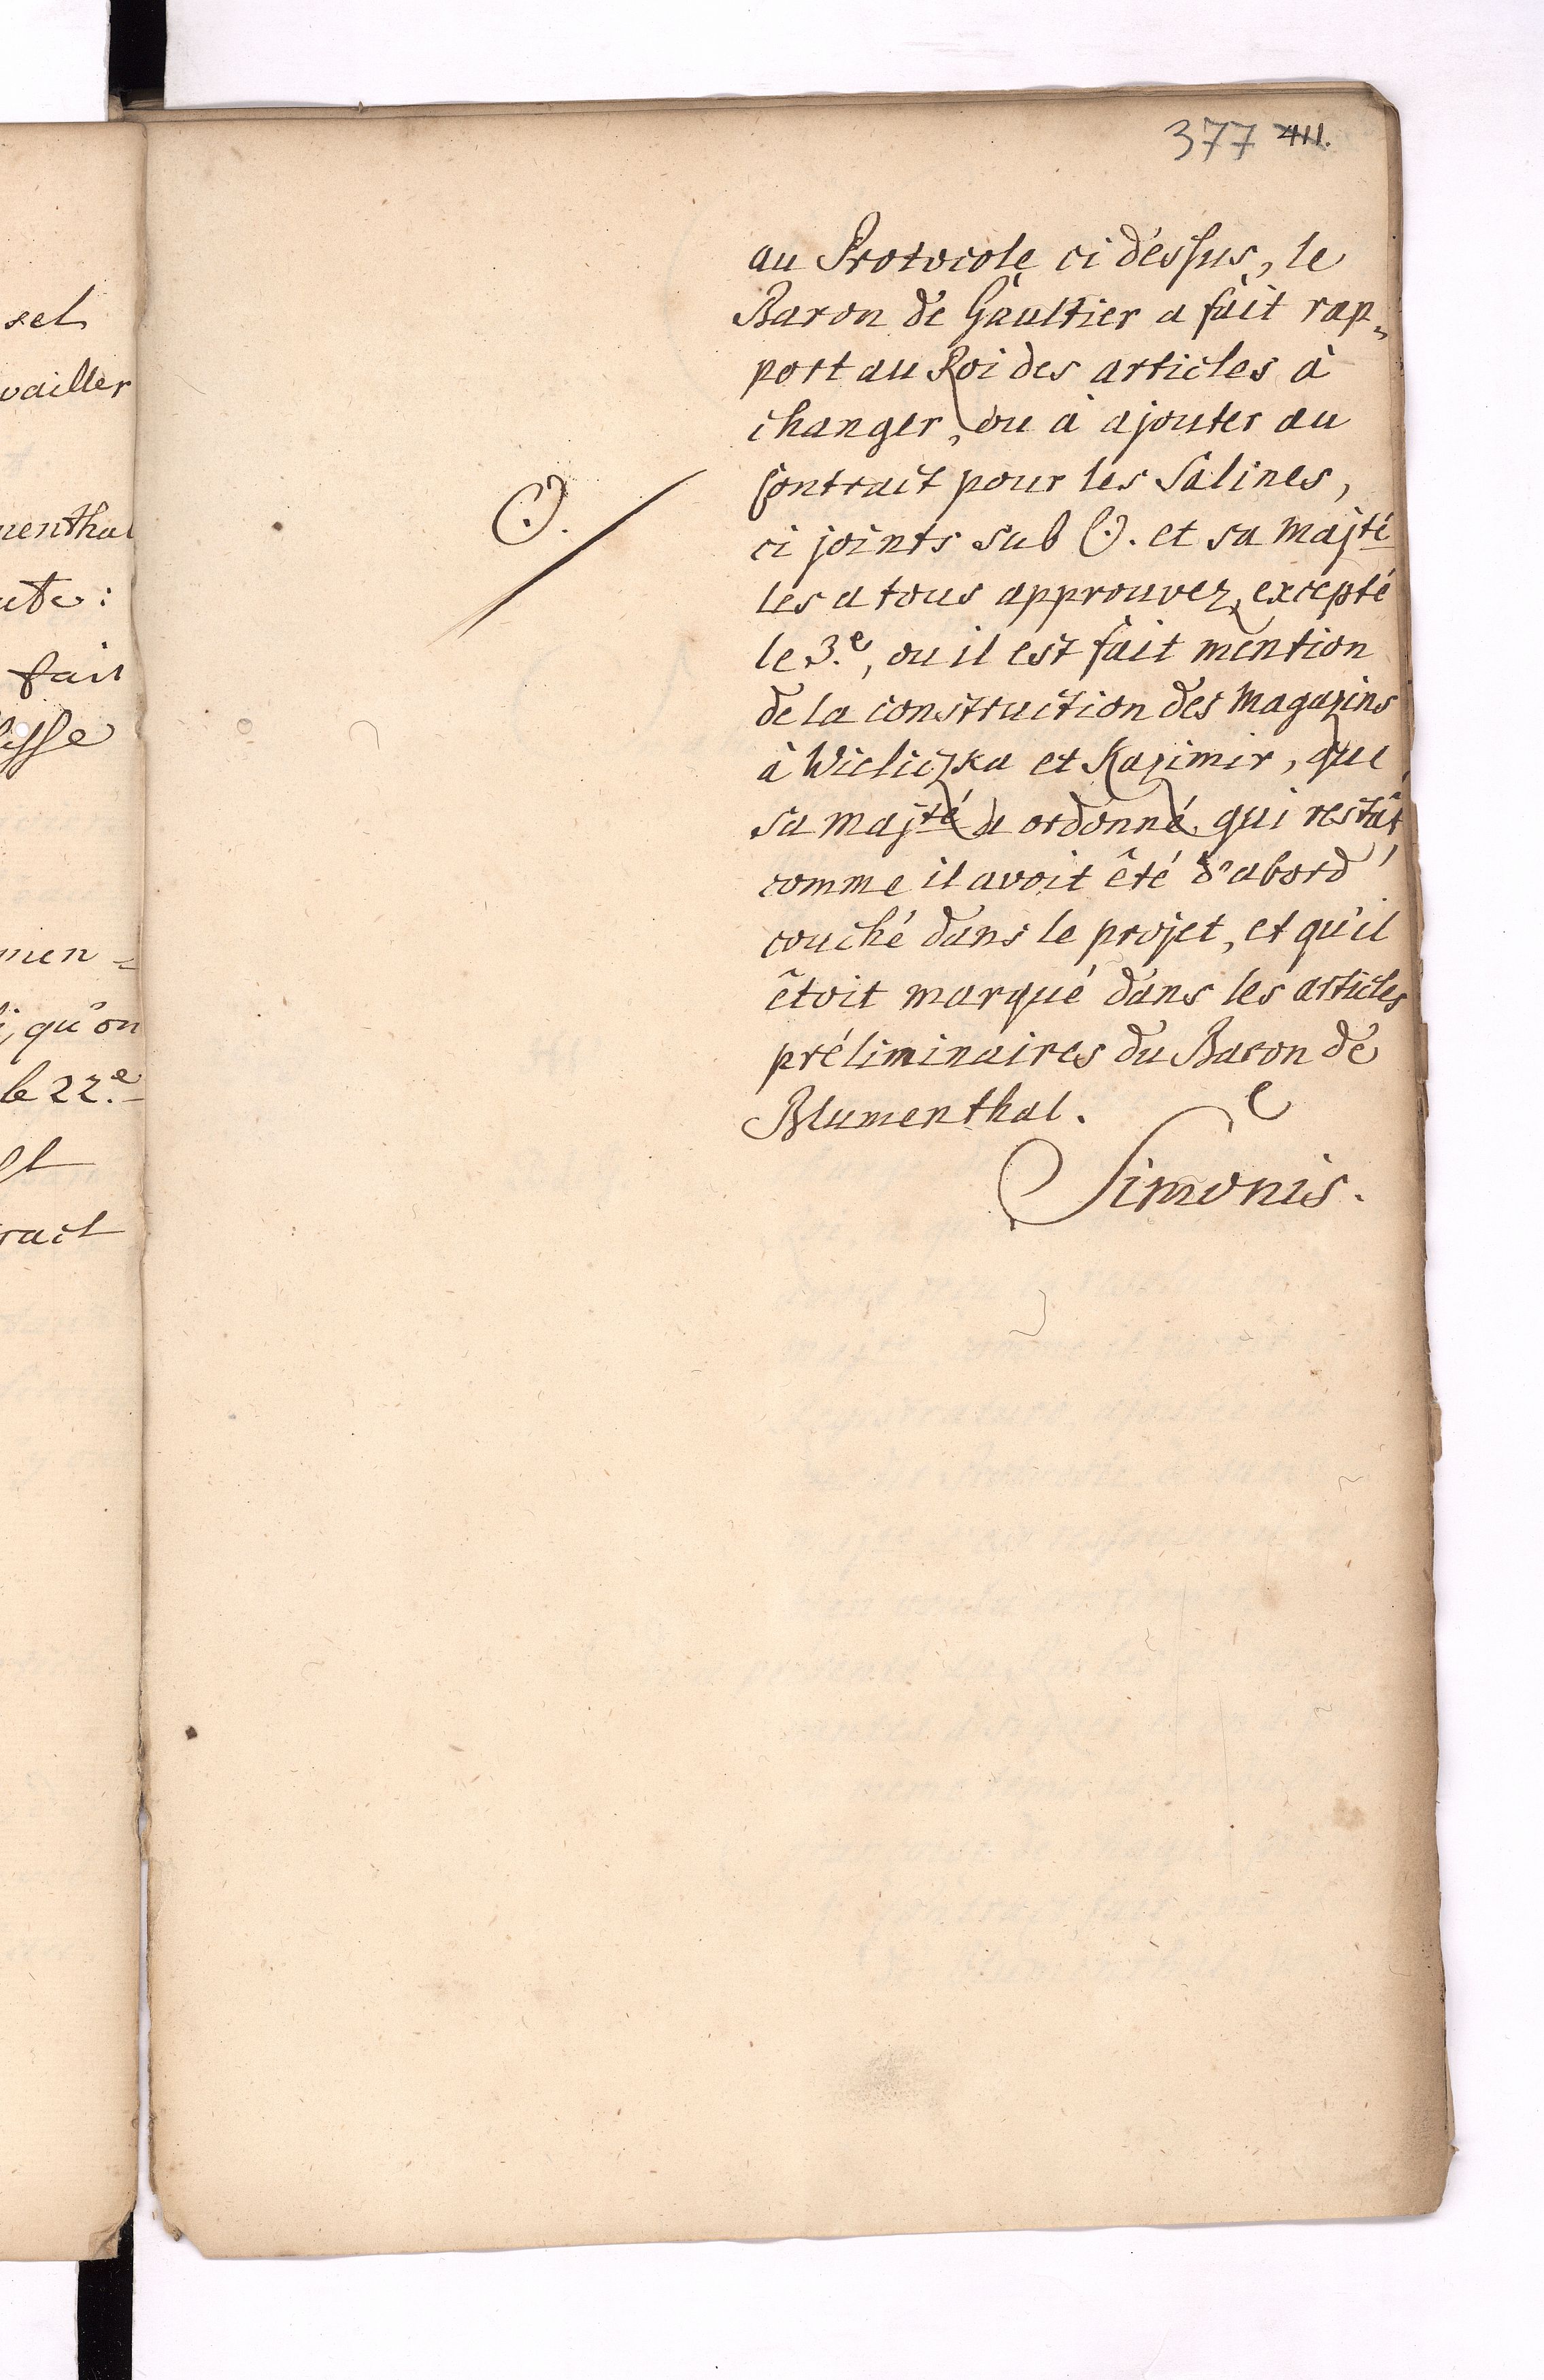 sel
vailler
menthal
ute:
fait
lisse
men=
i, qu'on
le 22.e
ract
377 411.
au Protocole ci déssus, le
Baron de Gaultier a fait rap„
port au Roi des articles à
changer, ou à ajouter au
Contract pour les Salines,
ci joints sub ☉. et sa majté
les a tous approuvez, excepté
le 3.e, ou il est fait mention
de la construction des Magazins
à Wieliczka et Kazimir, que
sa majté a ordonné qui restât,
comme il avoit êté d'abord
couché dans le projet, et qu'il
êtoit marqué dans les articles
préliminaires du Baron de
Blumenthal.
Simonis.
☉.